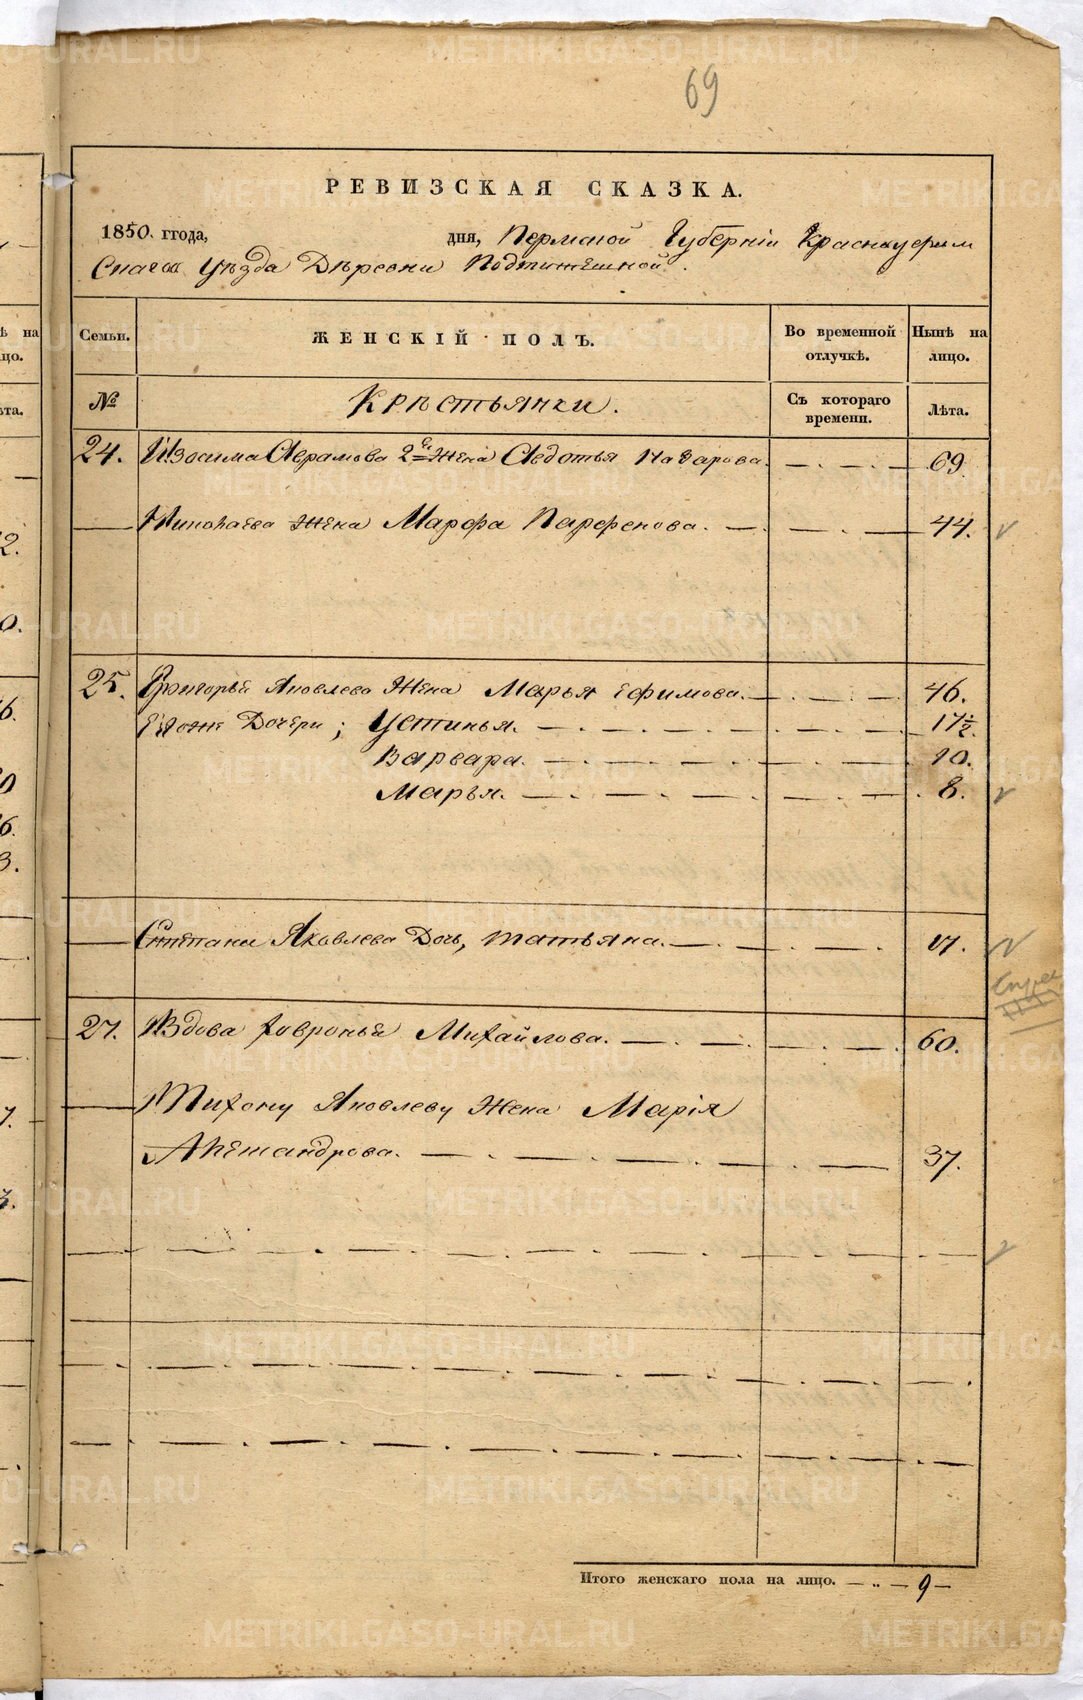 69
РЕВИЗСКАЯ СКАЗКА.
1850. ггода, дня, Пермской Губерніи Красноуфим
скаго Уѣзда Дѣревни
Семьи. ЖЕНСКІЙ ПОЛЪ. Во временной отлучкѣ. Нынѣ на лицо.
№ Крѣстьянки. Съ котораго времени. Лѣта.
24. Изосима Аврамова 2й Жена Авдотья Назарова. 69
Николаева Жена Марфа Парфенова. 44.
25. Григорья Яковлева Жена Марья Ефимова. 46.
Егоже Дочери; Устинья. 17½.
Варвара. 10.
Марья. 8.
Степана Яковлева Дочь, Татьяна. 17.
27. Вдова Февронья Михайлова. 60.
Тихону Яковлеву Жена Марія
Александрова. 37.
Итого женскаго пола на лицо. 9
METRIKI.GASO-URAL.RU